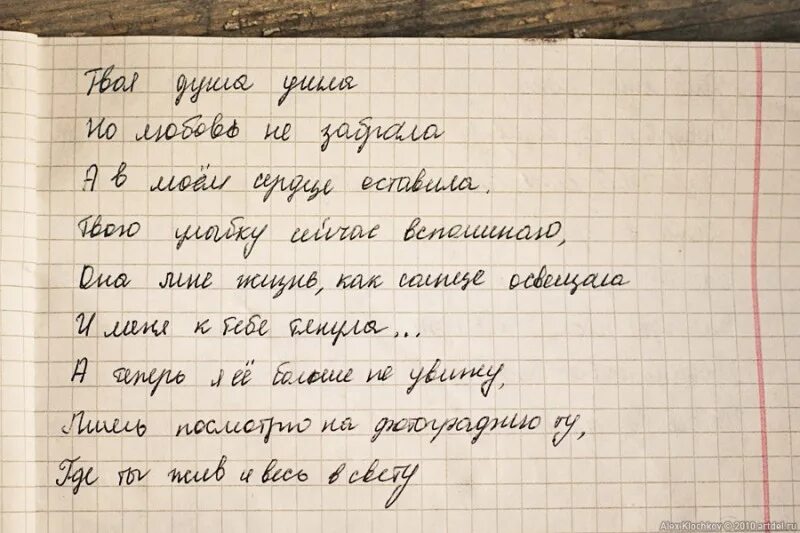 Твоя душа ушла
Но любовь не забрала
А в моём сердце оставила.
Твою улыбку сейчас вспоминаю,
Она мне жизнь, как солнце освещала
И меня к тебе тянула...
А теперь я её больше не увижу,
Лишь посмотрю на фотографию ту,
Где ты жив и весь в свету
Alex Klochkov © 2010 artdel.ru